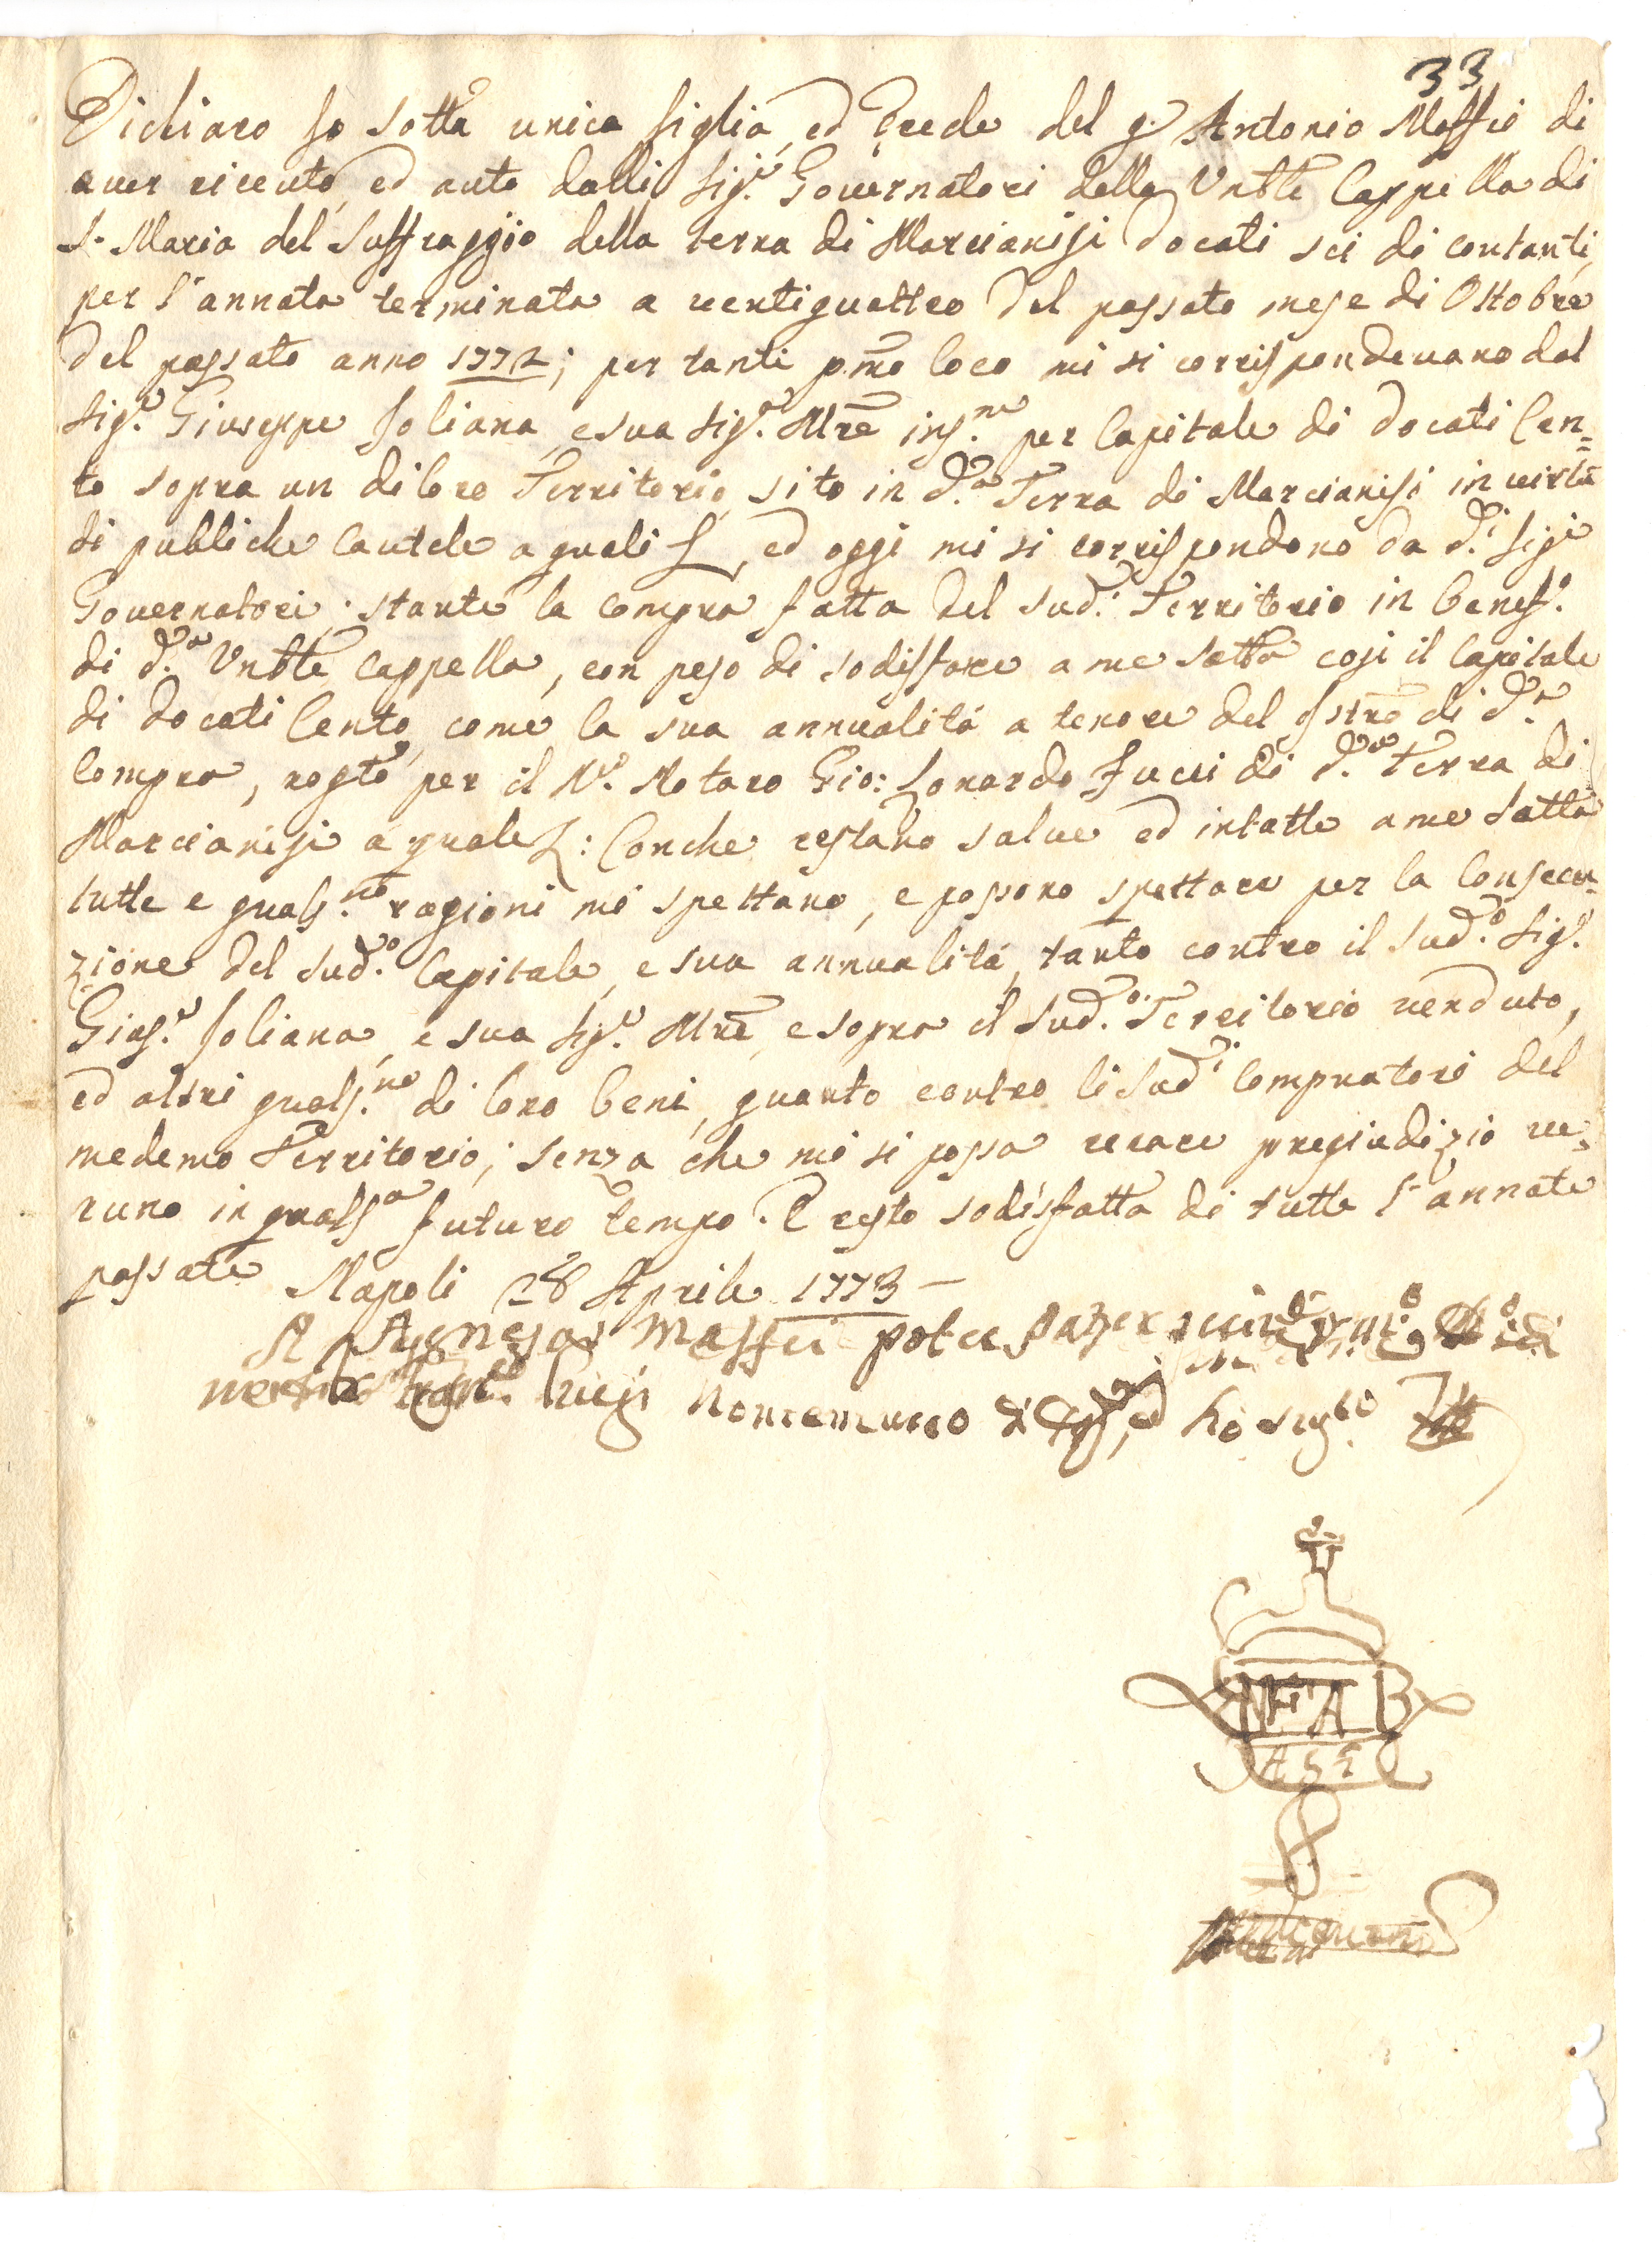 33
Dichiaro Io sotta unica figlia, ed Erede del q.m Antonio Maffei di
aver ricevuto, ed auto dalli Sig.ri Governatori della Vnble Cappella di
S. Maria del Suffraggio della terra di Marcianisi Docati sei di contanti,
per l'annata terminata a ventiquattro del passato mese di Ottobre
del passato anno 1772; per tanti p.mo loco mi si corrispondevano dal
Sig.r Giuseppe Foliana, e sua Sig.ra Mre ins.me per Capitale di Docati Cen=
to sopra un di loro Territorio, sito in d.a Terra di Marcianisi in virtù
di publiche Cautele a quali &, ed oggi mi si corrispondono da d.i Sig.i
Governatori; stante la compra fatta del sud.o Territorio in benef.o
di d.a Vnble Cappella, con peso di sodisfare a me sotta così il Capitale
di Docati Cento, come la sua annualità a tenore del Istro di d.a
Compra, rogto per il N.r Notaro Gio: Lonardo Fucci di d.a Terra di
Marcianisi a quale &: Conche restano salve ed intatte a me Sotta
tutte e quals.no ragioni mi spettano, e possono spettare per la Consecu=
zione del sud.o Capitale, e sua annualità, tanto contro il sud.o Sig.r
Gius.e Foliana, e sua Sig.ra Mre, e sopra il Sud.o Territorio venduto,
ed altri quals.no di loro beni, quanto contro li sud.i Compratori del
medemo Territorio; senza che mi si possa recare pregiudizio ve=
runo in qualsa futuro tempo. E resto sodisfatta di tutte l'annate
passate Napoli 28 Aprile 1773 —
Io Agnesa Maffei
Luigi Montemurro ed ho seg.to
NFAB